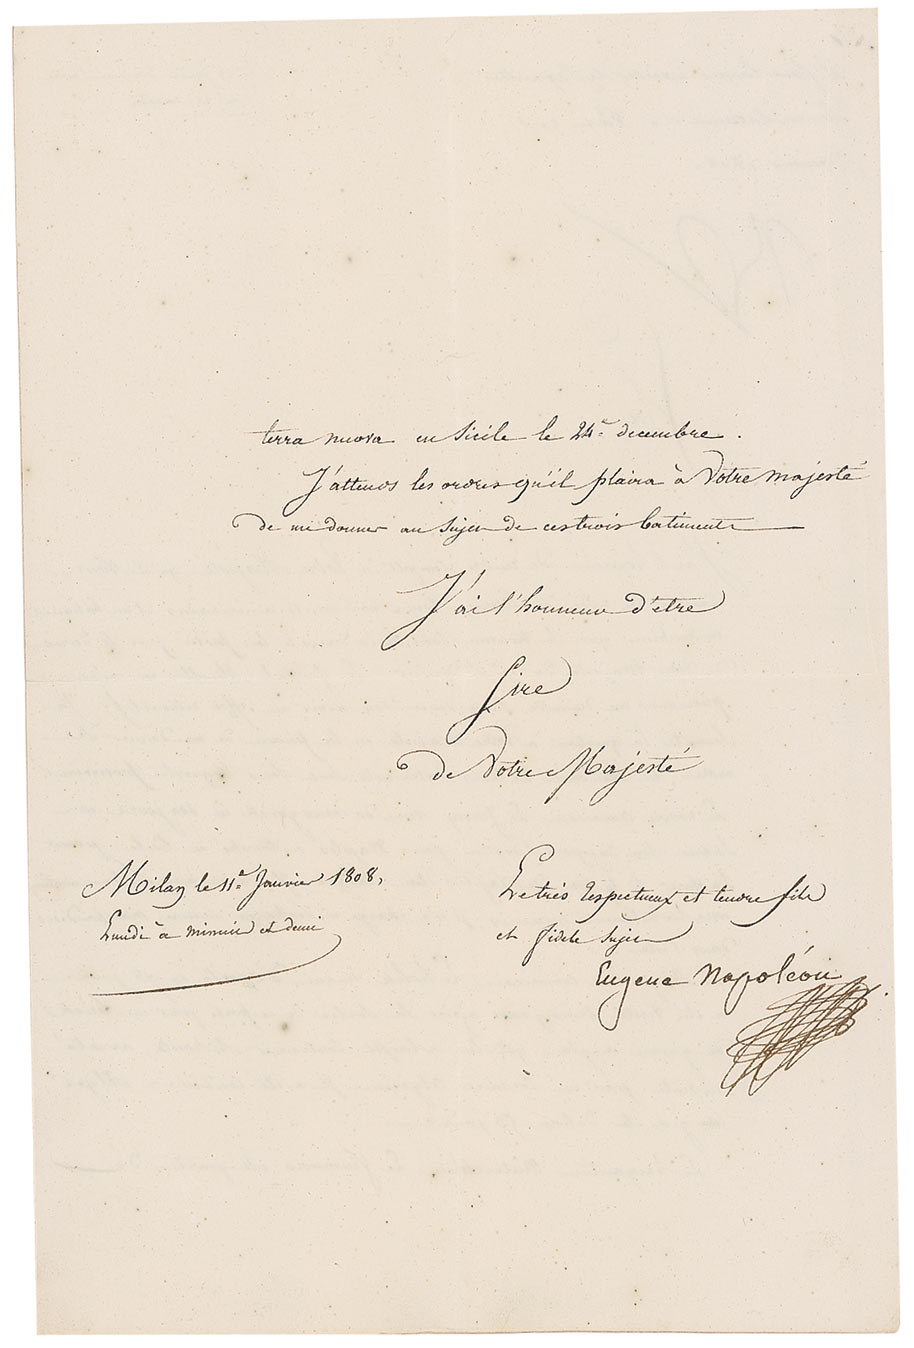 terra nuova en Sicile le 24.e decembre.
J'attends les ordres qu'il plaira à Votre majesté
de me donner au sujet de ces trois batiments
J'ai l'honneur d'etre
Sire
de Votre Majesté
Milan le 11.e Janvier 1808,
Lundi à minuit et demi
Le très respectueux et tendre fils
et fidele sujet
Eugene Napoléon